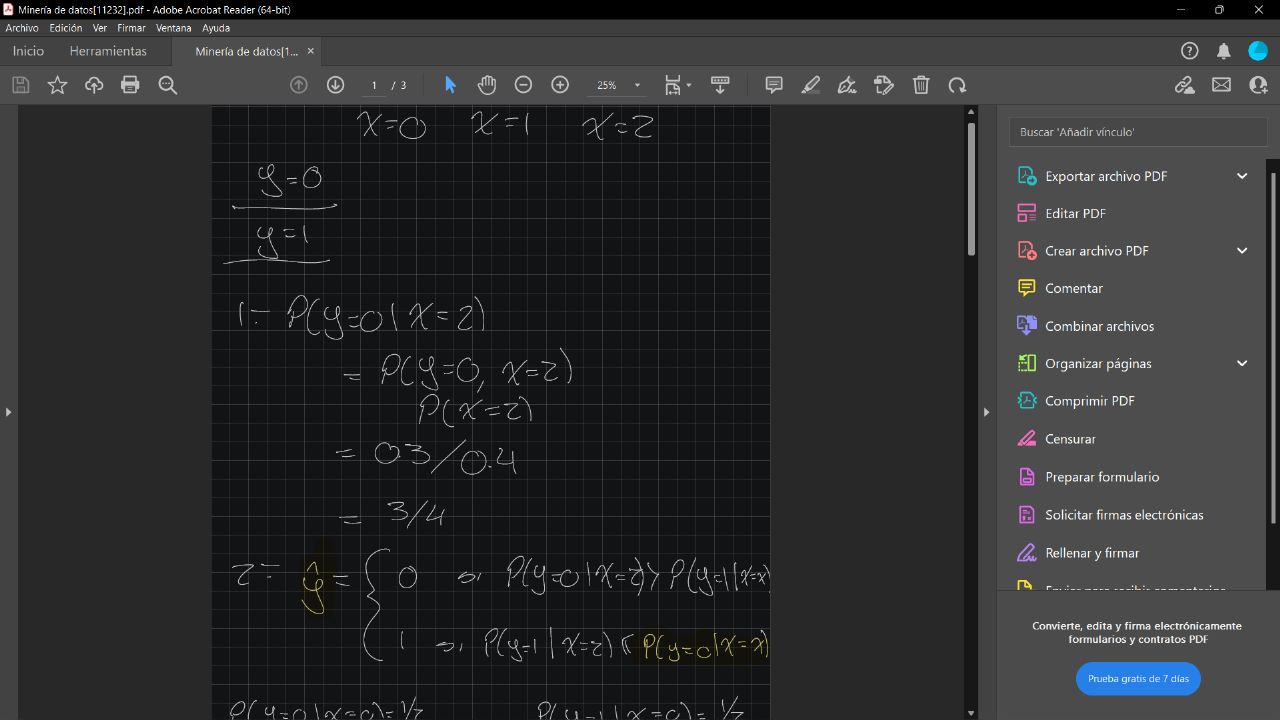 Minería de datos[11232].pdf - Adobe Acrobat Reader (64-bit)
Archivo Edición Ver Firmar Ventana Ayuda
Inicio Herramientas Minería de datos[1... ×
1 / 3 25%
x=0 x=1 x=2
y=0
y=1
1.- P(y=0|X=2)
= P(y=0, x=2)
P(x=2)
= 0.3/0.4
= 3/4
2.- ŷ= { 0 si P(y=0|X=2)> P(y=1|X=x)
1 si P(y=1|X=2) P(y=0|X=x)
P(y=0|x=0)=1/2 P(y=1|x=0)=1/2
Buscar 'Añadir vínculo'
Exportar archivo PDF
Editar PDF
Crear archivo PDF
Comentar
Combinar archivos
Organizar páginas
Comprimir PDF
Censurar
Preparar formulario
Solicitar firmas electrónicas
Rellenar y firmar
Convierte, edita y firma electrónicamente
formularios y contratos PDF
Prueba gratis de 7 días